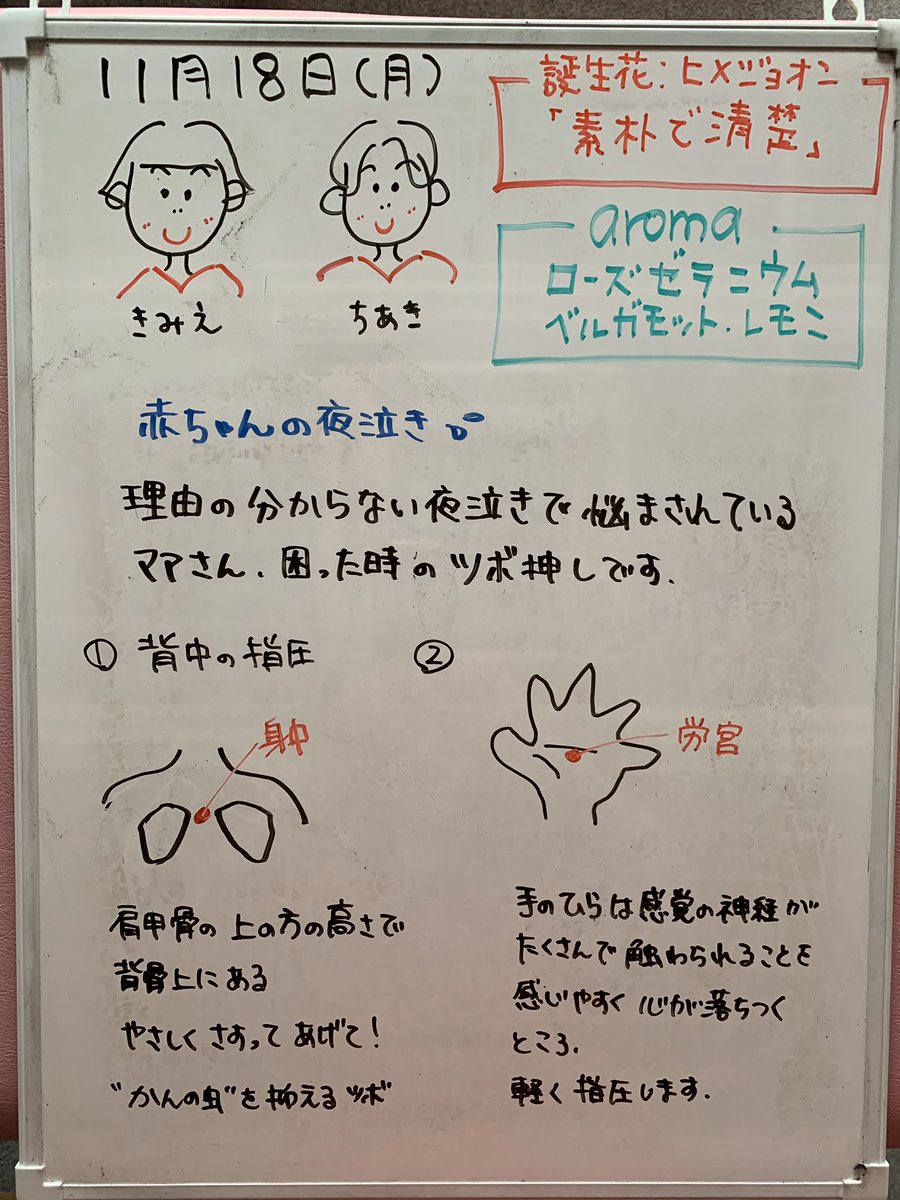 11月18日(月)
誕生花:ヒメジョオン
「素朴で清楚」
aroma
ローズゼラニウム
ベルガモット.レモン
きみえ
ちあき
赤ちゃんの夜泣き
理由の分からない夜泣きで悩まされている
ママさん、困った時のツボ押しです.
① 背中の指圧
身中
肩甲骨の上の方の高さで
背骨上にある
やさしくさすってあげて!
"かんの虫"を抑えるツボ
②
労宮
手のひらは感覚の神経が
たくさんで触わられることを
感じやすく心が落ちつく
ところ.
軽く指圧します.